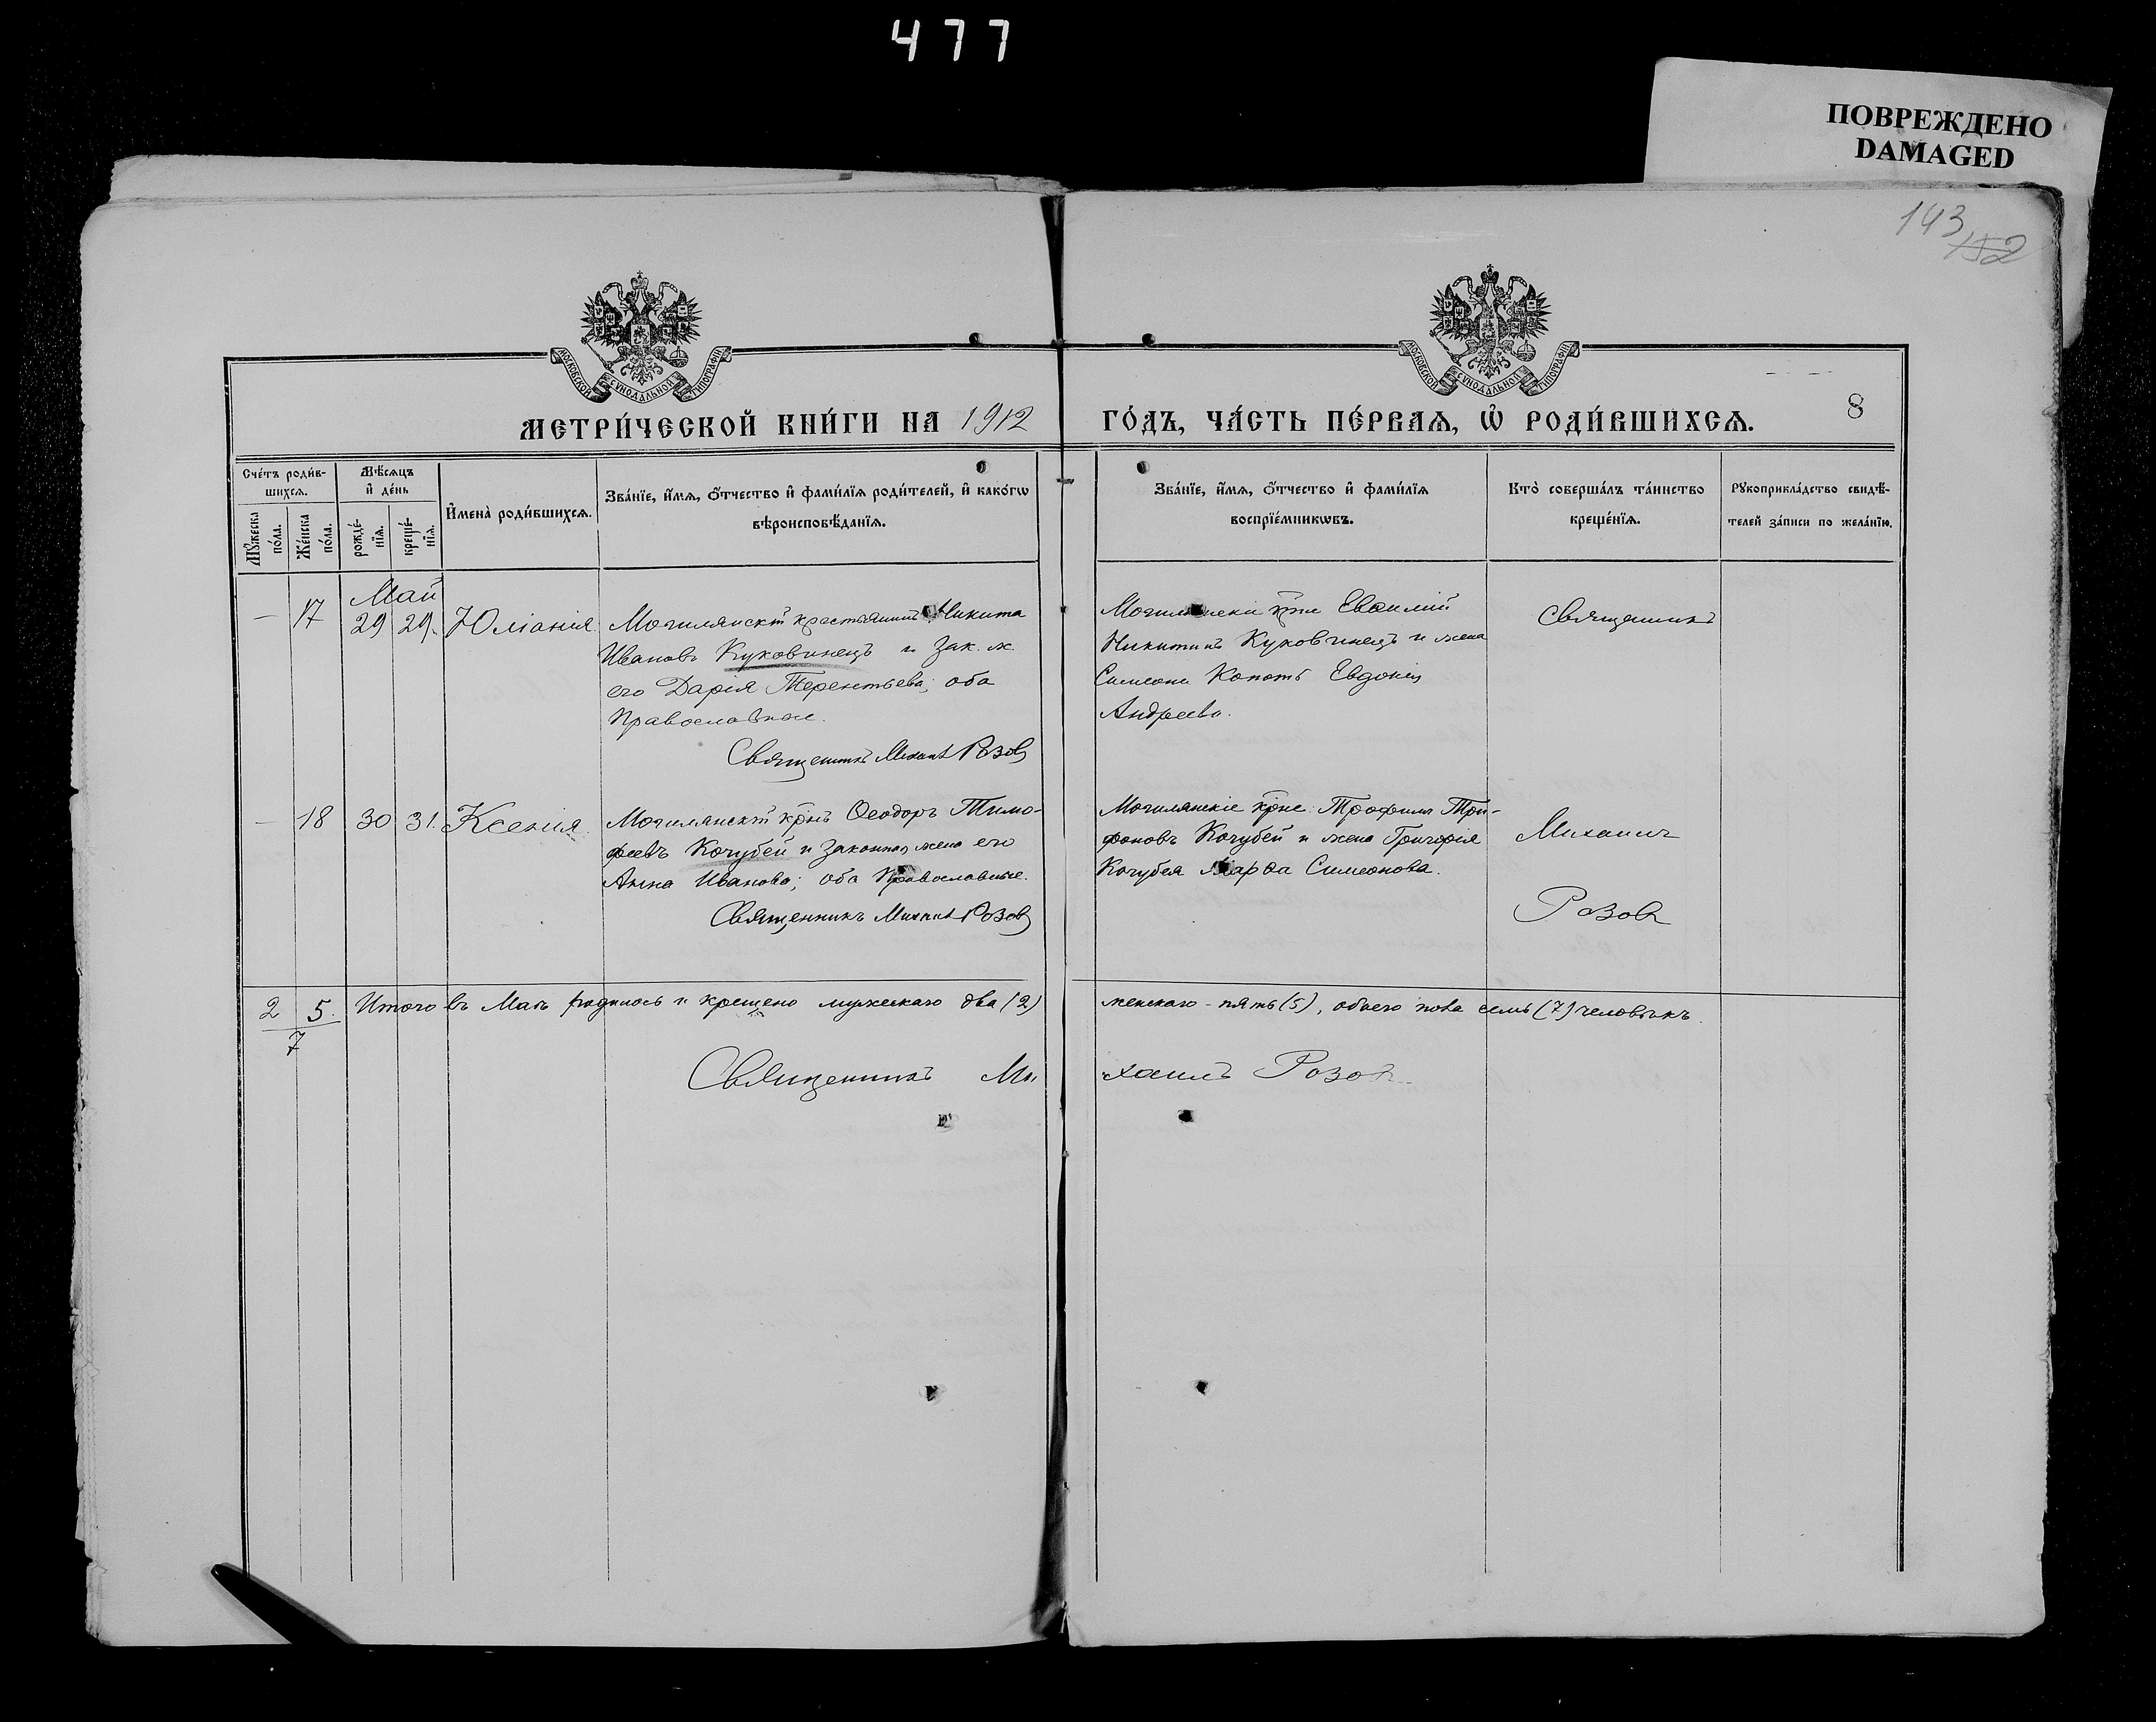 477
ПОВРЕЖДЕНО
DAMAGED
143
152
МОСКОВСКОЙ СѴНОДАЛЬНОЙ ТИПОГРАФІИ
МОСКОВСКОЙ СѴНОДАЛЬНОЙ ТИПОГРАФІИ
МЕТРИ́ЧЕСКОЙ КНИ́ГИ НА 1912 ГО́ДЪ, ЧА́СТЬ ПЕ́РВАѦ, Ѽ РОДИ́ВШИХСѦ. 8
Сче́тъ роди́в-
шихсѧ.
Мꙋ́жеска
по́ла.
Же́нска
по́ла.
Мѣ́сѧцъ
и҆ де́нь
рожде́-
нїѧ.
креще́-
нїѧ.
И҆мена̀ роди́вшихсѧ.
Зва́нїе, и҆́мѧ, ѻ҆́тчество и҆ фами́лїѧ роди́телей, и҆ како́гѡ
вѣроисповѣ́данїѧ.
Зва́нїе, и҆́мѧ, ѻ҆́тчество и҆ фами́лїѧ
воспрїе́мникѡвъ.
Кто̀ соверша́лъ та́инство
креще́нїѧ.
Рꙋкоприкла́дство свидѣ́-
телей за́писи по жела́нїю.
Май
— 17 29 29. Юліанія.
Могилянскій крестьянинъ Никита
Ивановъ Куковинецъ и зак. ж.
его Дарія Терентьева; оба
Православные.
Священникъ Михаилъ Розовъ
кр̃не Евѳимій
Никитинъ Куковинецъ и жена
Симеона Копоть Евдокія
Андреева.
Священникъ
— 18 30 31. Ксенія.
Могилянскій кр̃нъ Ѳеодоръ Тимо-
феевъ Кочубей и законная жена его
Анна Иванова; оба Православные.
Священникъ Михаилъ Розовъ
Могилянскіе кр̃не: Трофимъ Три-
фоновъ Кочубей и жена Григорія
Кочубея Марѳа Симеонова.
Михаилъ
Розовъ
2 5. Итого въ Маѣ родилось и крещено мужескаго два (2) женскаго - пять (5), обоего пола семь (7) человѣкъ.
7
Священникъ Михаилъ Розовъ